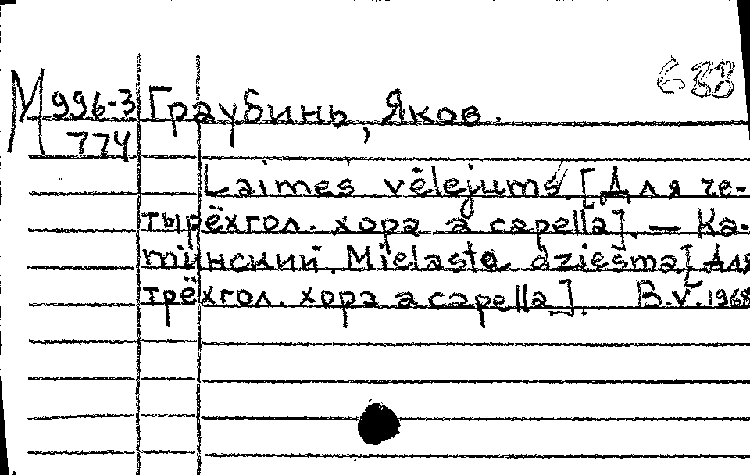 688
М 996-3 Граубинь, Яков.
774
Laimes vēlejums. [Для че-
тырёхгол. хора a capella]. — Ка-
минский. Mīelasta dziesma[Для
трёхгол. хора a capella]. B.v. 1968